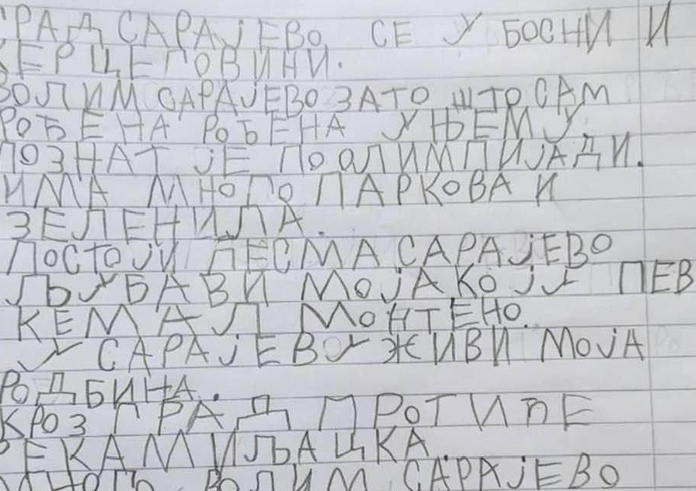 ГРАД САРАЈЕВО СЕ У БОСНИ И
ХЕРЦЕГОВИНИ.
ВОЛИМ САРАЈЕВО ЗАТО ШТО САМ
РОЂЕНА РОЂЕНА У ЊЕМУ
ПОЗНАТ ЈЕ ПО ОЛИМПИЈАДИ.
ИМА МНОГО ПАРКОВА И
ЗЕЛЕНИЛА.
ПОСТОЈИ ПЕСМА САРАЈЕВО
ЉУБАВИ МОЈА КОЈУ ПЕВ
КЕМАЛ МОНТЕНО.
У САРАЈЕВУ ЖИВИ МОЈА
РОДБИНА.
КРОЗ ГРАД ПРОТИЧЕ
РЕКА МИЉАЦКА.
МНОГО ВОЛИМ САРАЈЕВО